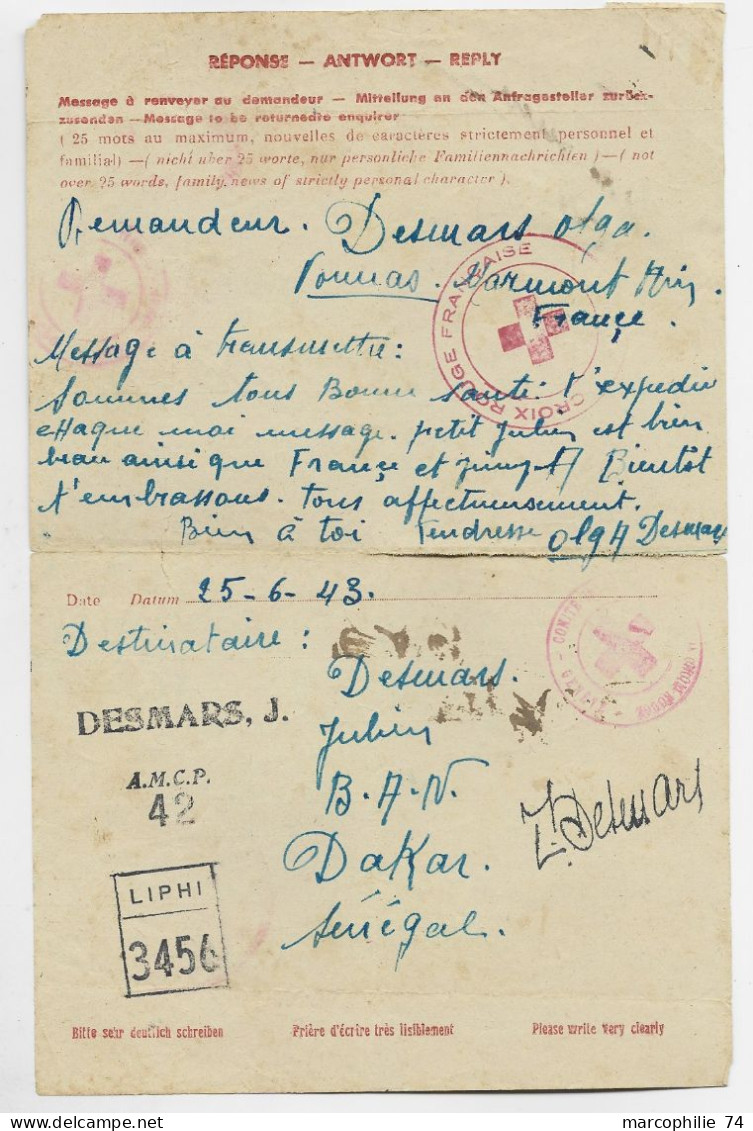 RÉPONSE — ANTWORT — REPLY
Message à renvoyer au demandeur — Mitteilung an den Anfragesteller zurück-
zusenden — Message to be returnedte enquirer
( 25 mots au maximum, nouvelles de caractères strictement personnel et
familial) —( nicht uber 25 worte, nur personliche Familiennachrichten ) —( not
over 25 words, family news of strictly personal character ).
Demandeur. Desmars Olga.
Vonnas. Marmont Ain
France.
CROIX ROUGE FRANÇAISE
Message à transmettre:
Sommes tous Bonne santé. t'expédie
chaque moi message. petit Julien est bien
beau ainsi que France et Bientôt
t'embrassons. tous affectueusement.
Bien à toi Tendresse Olga Desmars
Date Datum 25-6-43.
Destinataire:
COMITÉ
CROIX-ROUGE
DESMARS, J.
Desmars.
Julien
A.M.C.P.
42
B.A.N.
Desmars
Dakar.
LIPHI
3456
Sénégal.
Bitte sehr deutlich schreiben Prière d'écrire très lisiblement Please write very clearly
marcophilie 74